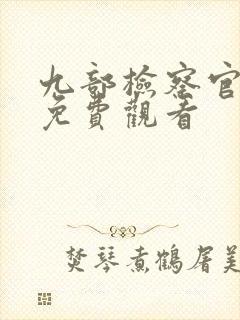 九部檢察官
免費觀看
焚琴煮鶴屠美